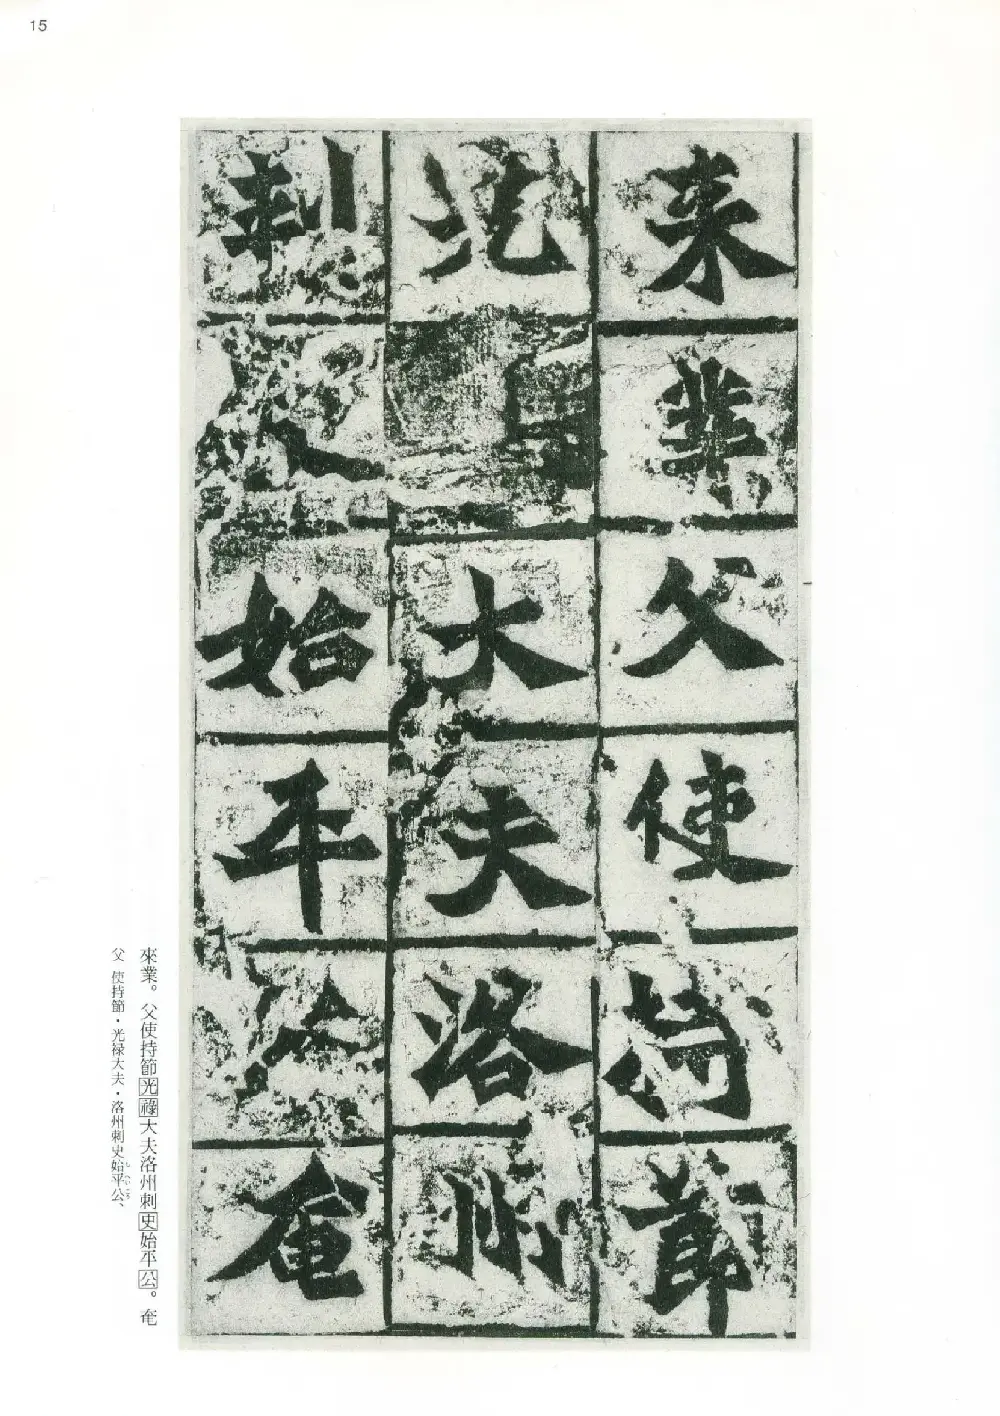 15
来業父使持節
光大夫洛州
刺史始平公奄
來業。父使持節光祿大夫洛州刺史始平公。奄
父 使持節・光禄大夫・洛州刺史始平公、
しへいこう